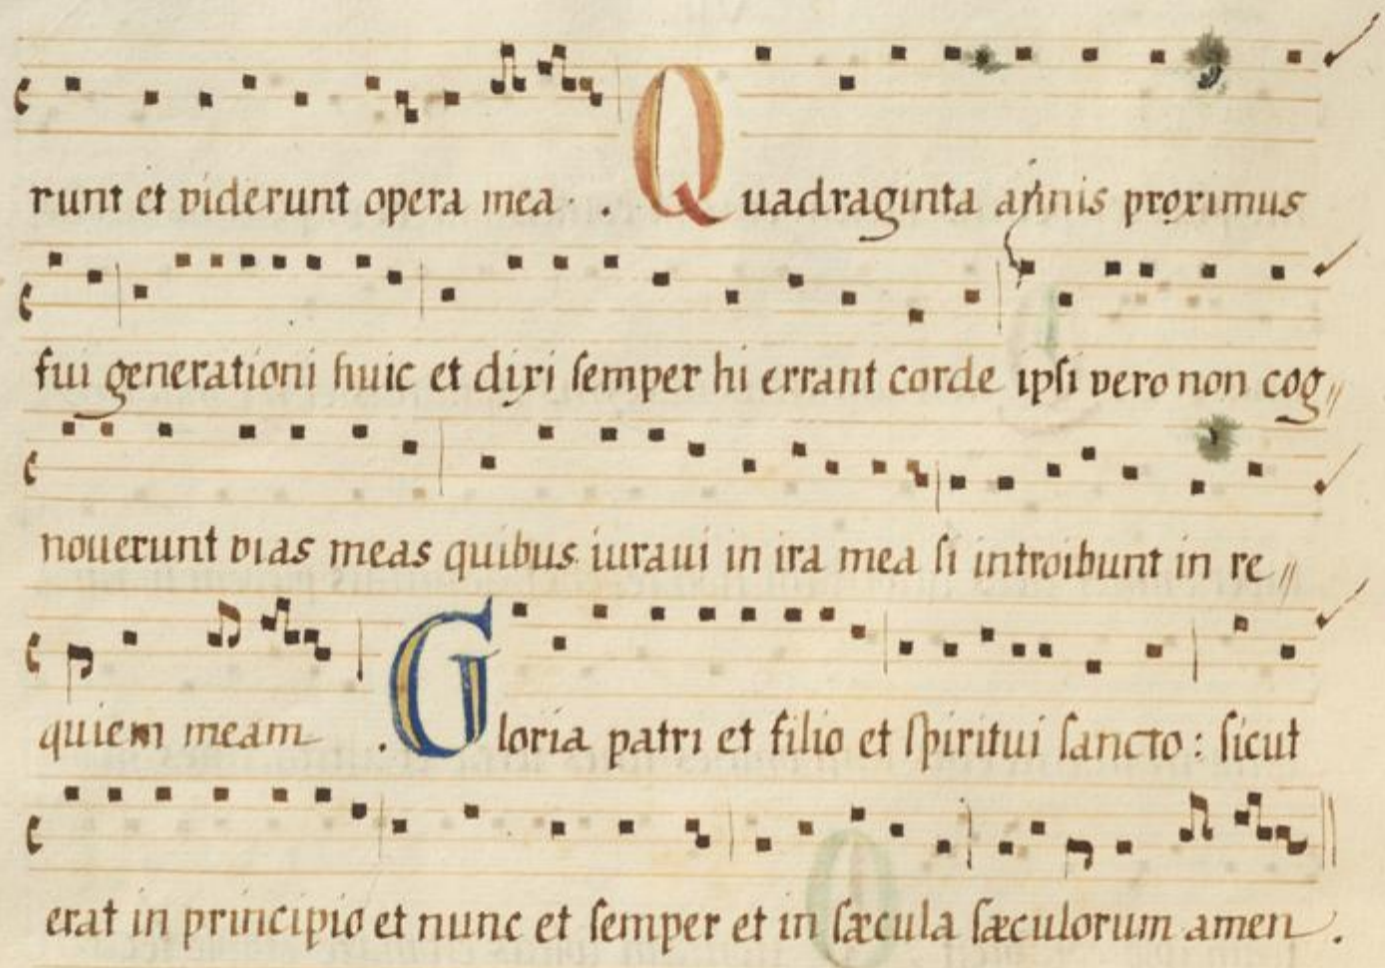 runt et viderunt opera mea . Quadraginta annis proximus
fui generationi huic et dixi semper hi errant corde ipsi vero non cog〃
nouerunt vias meas quibus iuraui in ira mea si introibunt in re〃
quiem meam . Gloria patri et filio et spiritui sancto : sicut
erat in principio et nunc et semper et in sæcula sæculorum amen .